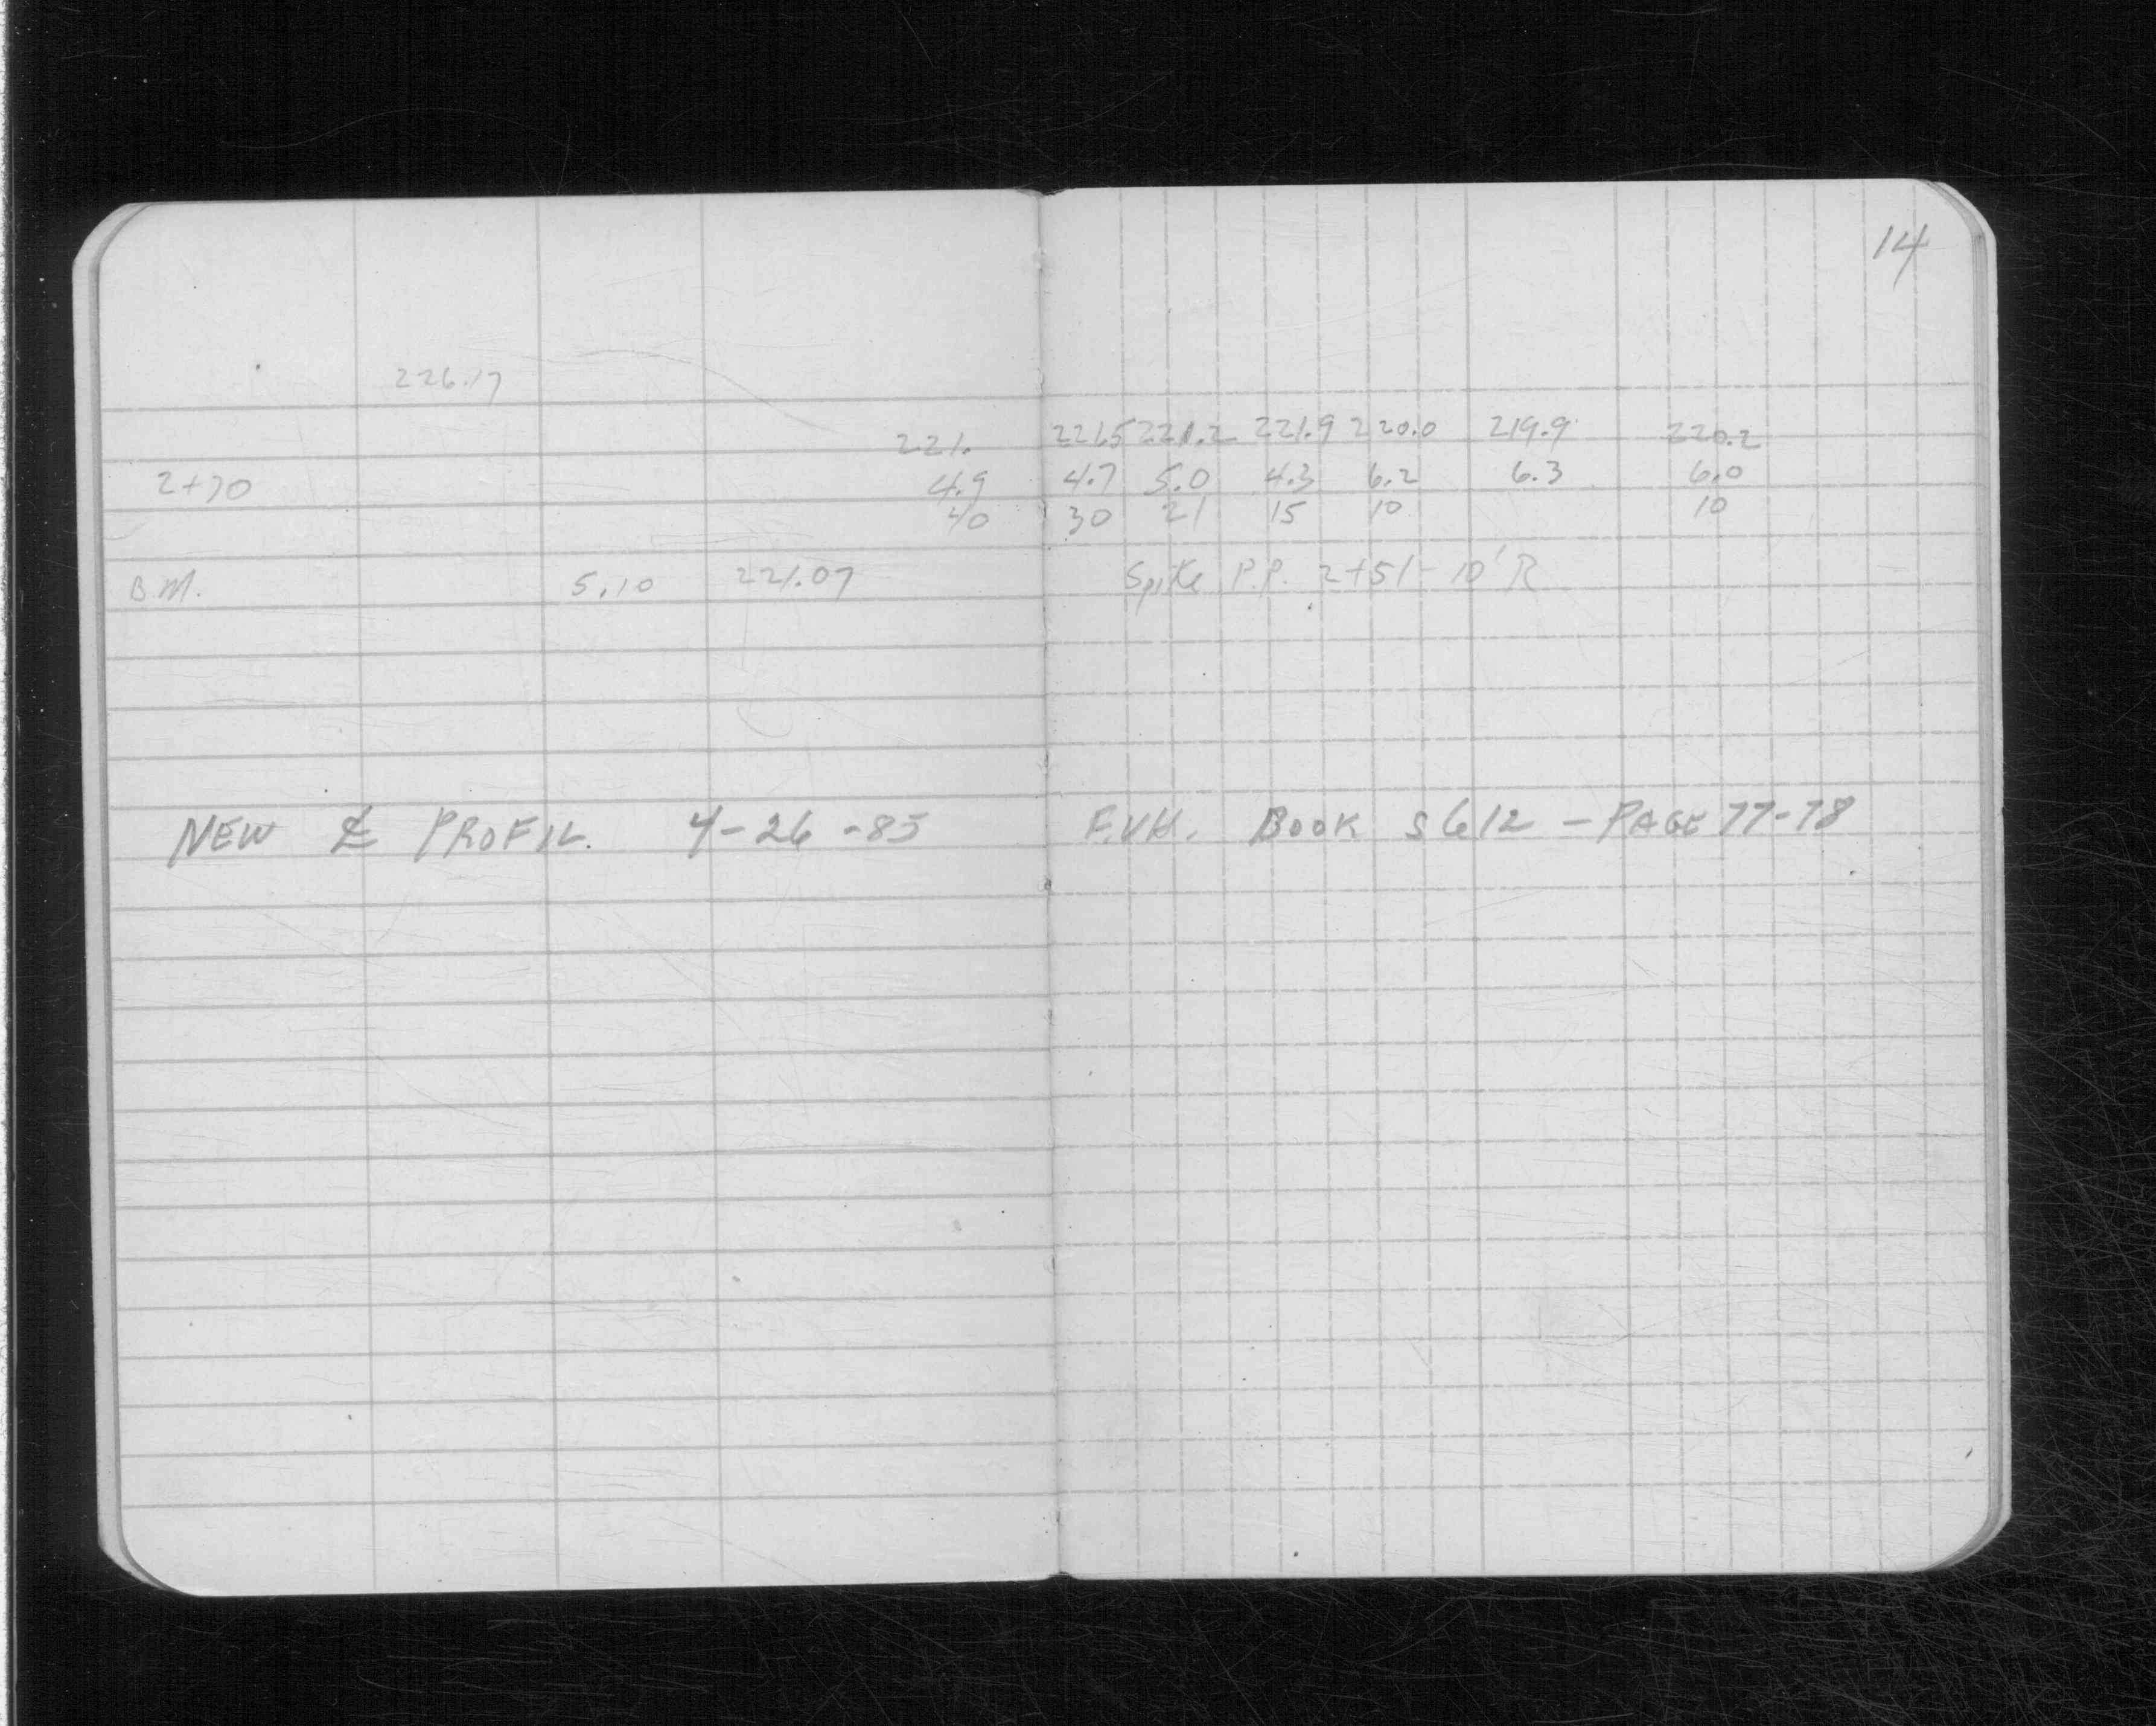 14
226.17
221. 221.5 221.2 221.9 220.0 219.9 220.2
2+70 4.9 4.7 5.0 4.3 6.2 6.3 6.0
40 30 21 15 10 10
B.M. 5.10 221.07 Spike P.P. 2+51- 10'R
NEW ℄ PROFIL. 4-26-85 F.V.H. BOOK S612 - PAGE 77-78